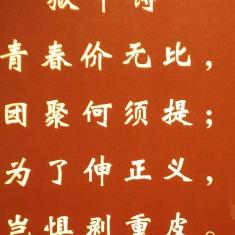 青春价无比，
团聚何须提；
为了伸正义，
岂惧剥重皮。